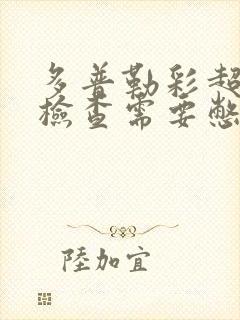 多普勒彩超
檢查需要憋
陸加宜